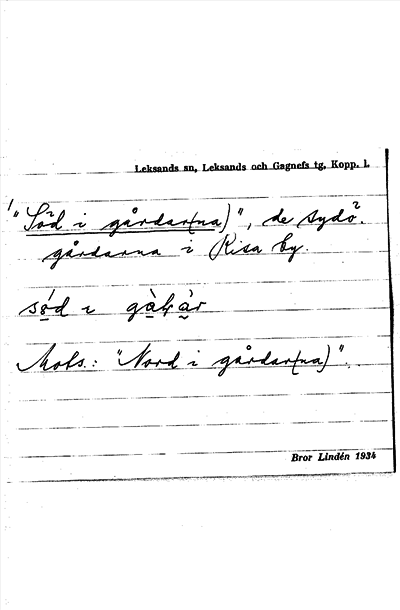 Leksands sn, Leksands och Gagnefs tg, Kopp. l.
1) "Söd i gårdar(na)", de sydö.
gårdarna i Risa by.
Mots.: "Nord i gårdar(na)".
Bror Lindén 1934